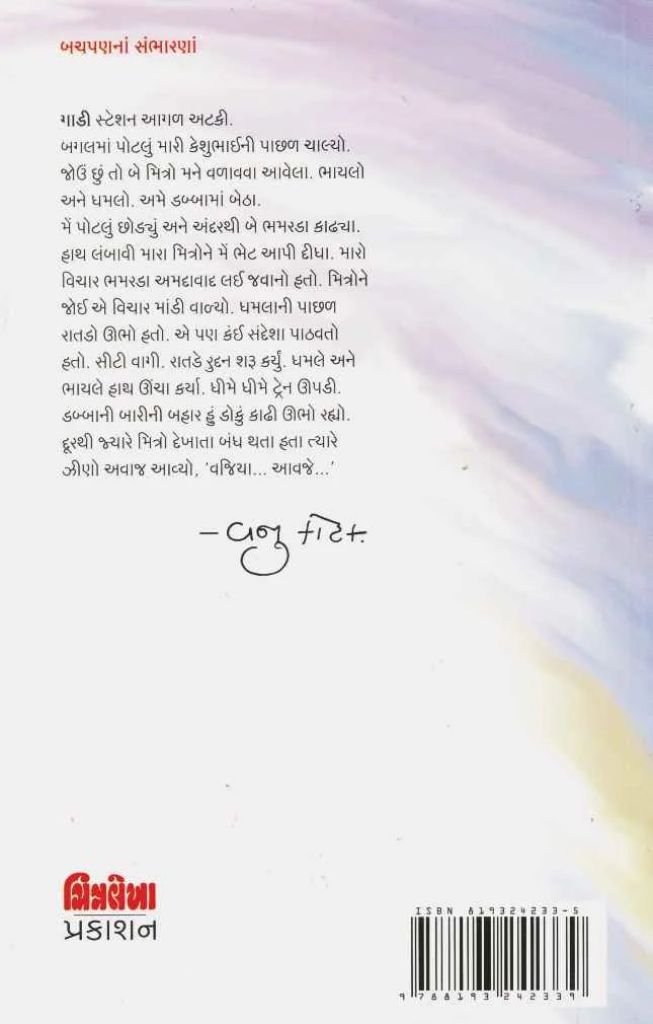 બચપણનાં સંભારણાં
ગાડી સ્ટેશન આગળ અટકી.
બગલમાં પોટલું મારી કેશુભાઈની પાછળ ચાલ્યો.
જોઉં છું તો બે મિત્રો મને વળાવવા આવેલા. ભાયલો
અને ધમલો. અમે ડબ્બામાં બેઠા.
મેં પોટલું છોડ્યું અને અંદરથી બે ભમરડા કાઢ્યા.
હાથ લંબાવી મારા મિત્રોને મેં ભેટ આપી દીધા. મારો
વિચાર ભમરડા અમદાવાદ લઈ જવાનો હતો. મિત્રોને
જોઈ એ વિચાર માંડી વાળ્યો. ધમલાની પાછળ
રાતડો ઊભો હતો. એ પણ કંઈ સંદેશા પાઠવતો
હતો. સીટી વાગી. રાતડે રુદન શરૂ કર્યું. ધમલે અને
ભાયલે હાથ ઊંચા કર્યા. ધીમે ધીમે ટ્રેન ઊપડી.
ડબ્બાની બારીની બહાર હું ડોકું કાઢી ઊભો રહ્યો.
દૂરથી જ્યારે મિત્રો દેખાતા બંધ થતા હતા ત્યારે
ઝીણો અવાજ આવ્યો, ‘વજિયા... આવજે...’
– વજુ કોટક
ચિત્રલેખા
પ્રકાશન
ISBN 819324233-5
9 788193 242339